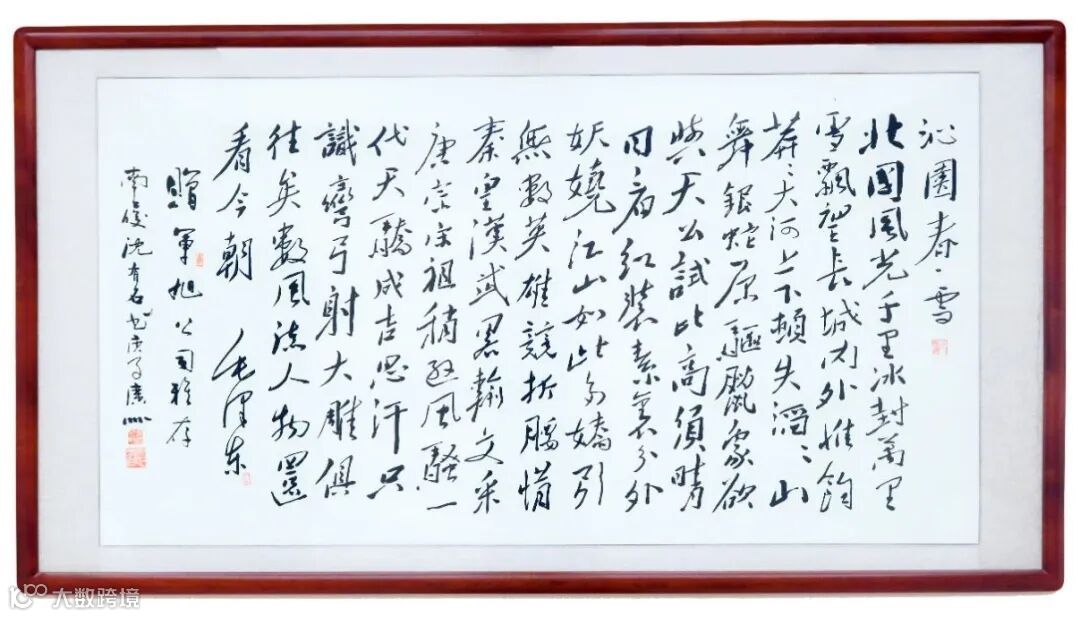 沁園春·雪
北國風光千里冰封萬里
雪飄望長城内外惟餘
莽〻大河上下頓失滔〻山
舞銀蛇原驅臘象欲
與天公試比高須晴
日看紅裝素裹分外
妖嬈江山如此多嬌引
無數英雄競折腰惜
秦皇漢武略輸文采
唐宗宋祖稍遜風騷一
代天驕成吉思汗只
識彎弓射大雕俱
往矣數風流人物還
看今朝 毛澤東
贈軍旭公司雅存
南陵沈有名書庚子廣州
大数跨境